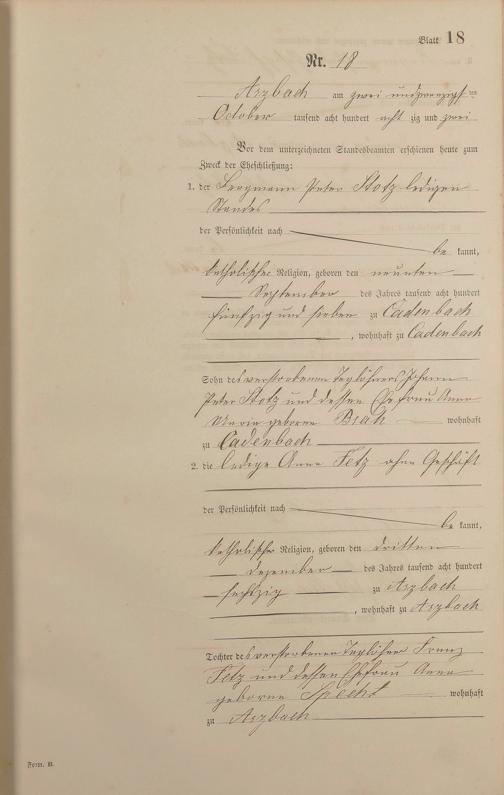 Blatt 18
Nr. 18
Arzbach am zwei und zwanzigsten
October tausend acht hundert acht zig und zwei
Vor dem unterzeichneten Standesbeamten erschienen heute zum
Zweck der Eheschließung:
1. der Bergmann Peter Stotz ledigen
Standes
der Persönlichkeit nach
be kannt,
katholischer Religion, geboren den neunten
September des Jahres tausend acht hundert
fünfzig und sieben zu Cadenbach
, wohnhaft zu Cadenbach
Sohn des verstorbenen Taglöhners Johann
Peter Stotz und dessen Ehefrau Anna
Maria geborene wohnhaft
zu Cadenbach
2. die ledige Anna Fetz ohne Geschäft
der Persönlichkeit nach
be kannt,
katholischer Religion, geboren den dritten
Dezember des Jahres tausend acht hundert
sechszig zu Arzbach
, wohnhaft zu Arzbach
Tochter des verstorbenen Taglöhner Franz
Fetz und dessen Ehefrau Anna
geborne Specht wohnhaft
zu Arzbach
Form. B.